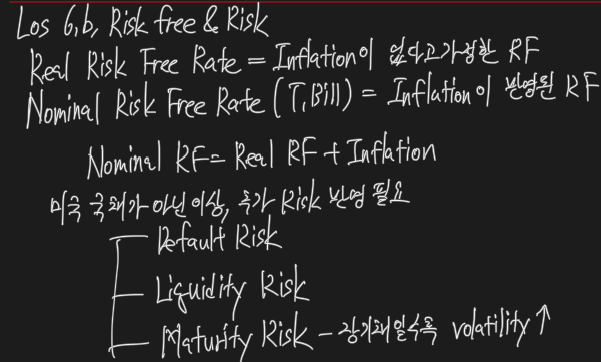 Los 6,b, Risk free & Risk
Real Risk Free Rate = Inflation이 없다고 가정한 RF
Nominal Risk Free Rate (T,Bill) = Inflation이 반영된 RF
Nominal RF = Real RF + Inflation
미국 국채가 아닌 이상, 추가 Risk 반영 필요
Default Risk
Liquidity Risk
Maturity Risk - 장기채일수록 volatility ↑